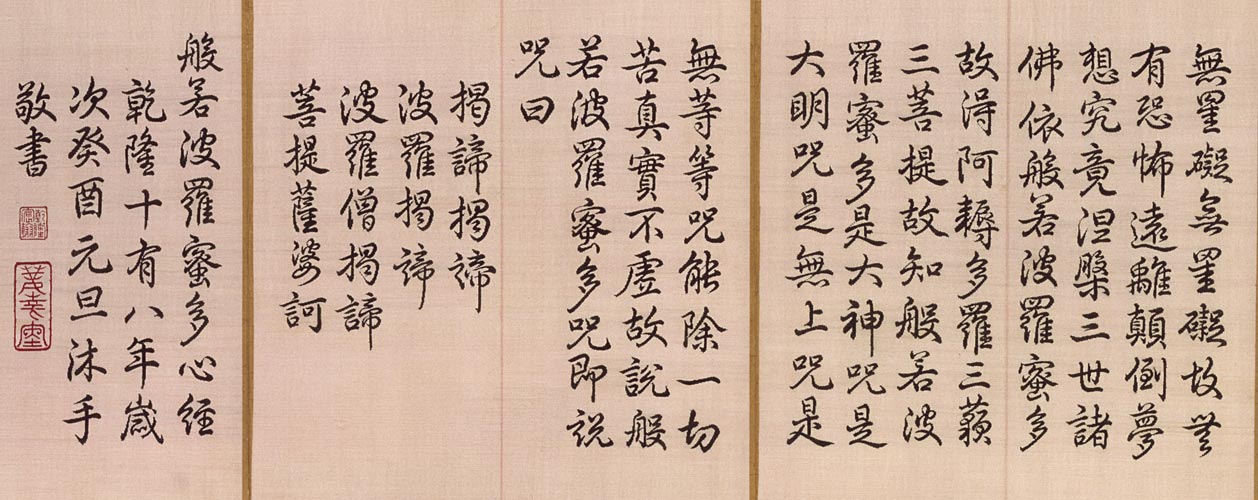 無罣礙無罣礙故無
有恐怖遠離顛倒夢
想究竟涅槃三世諸
佛依般若波羅蜜多
故得阿耨多羅三藐
三菩提故知般若波
羅蜜多是大神咒是
大明咒是無上咒是
無等等咒能除一切
苦真實不虛故說般
若波羅蜜多咒即說
咒曰
揭諦揭諦
波羅揭諦
波羅僧揭諦
菩提薩婆訶
般若波羅蜜多心經
乾隆十有八年歲
次癸酉元旦沐手
敬書